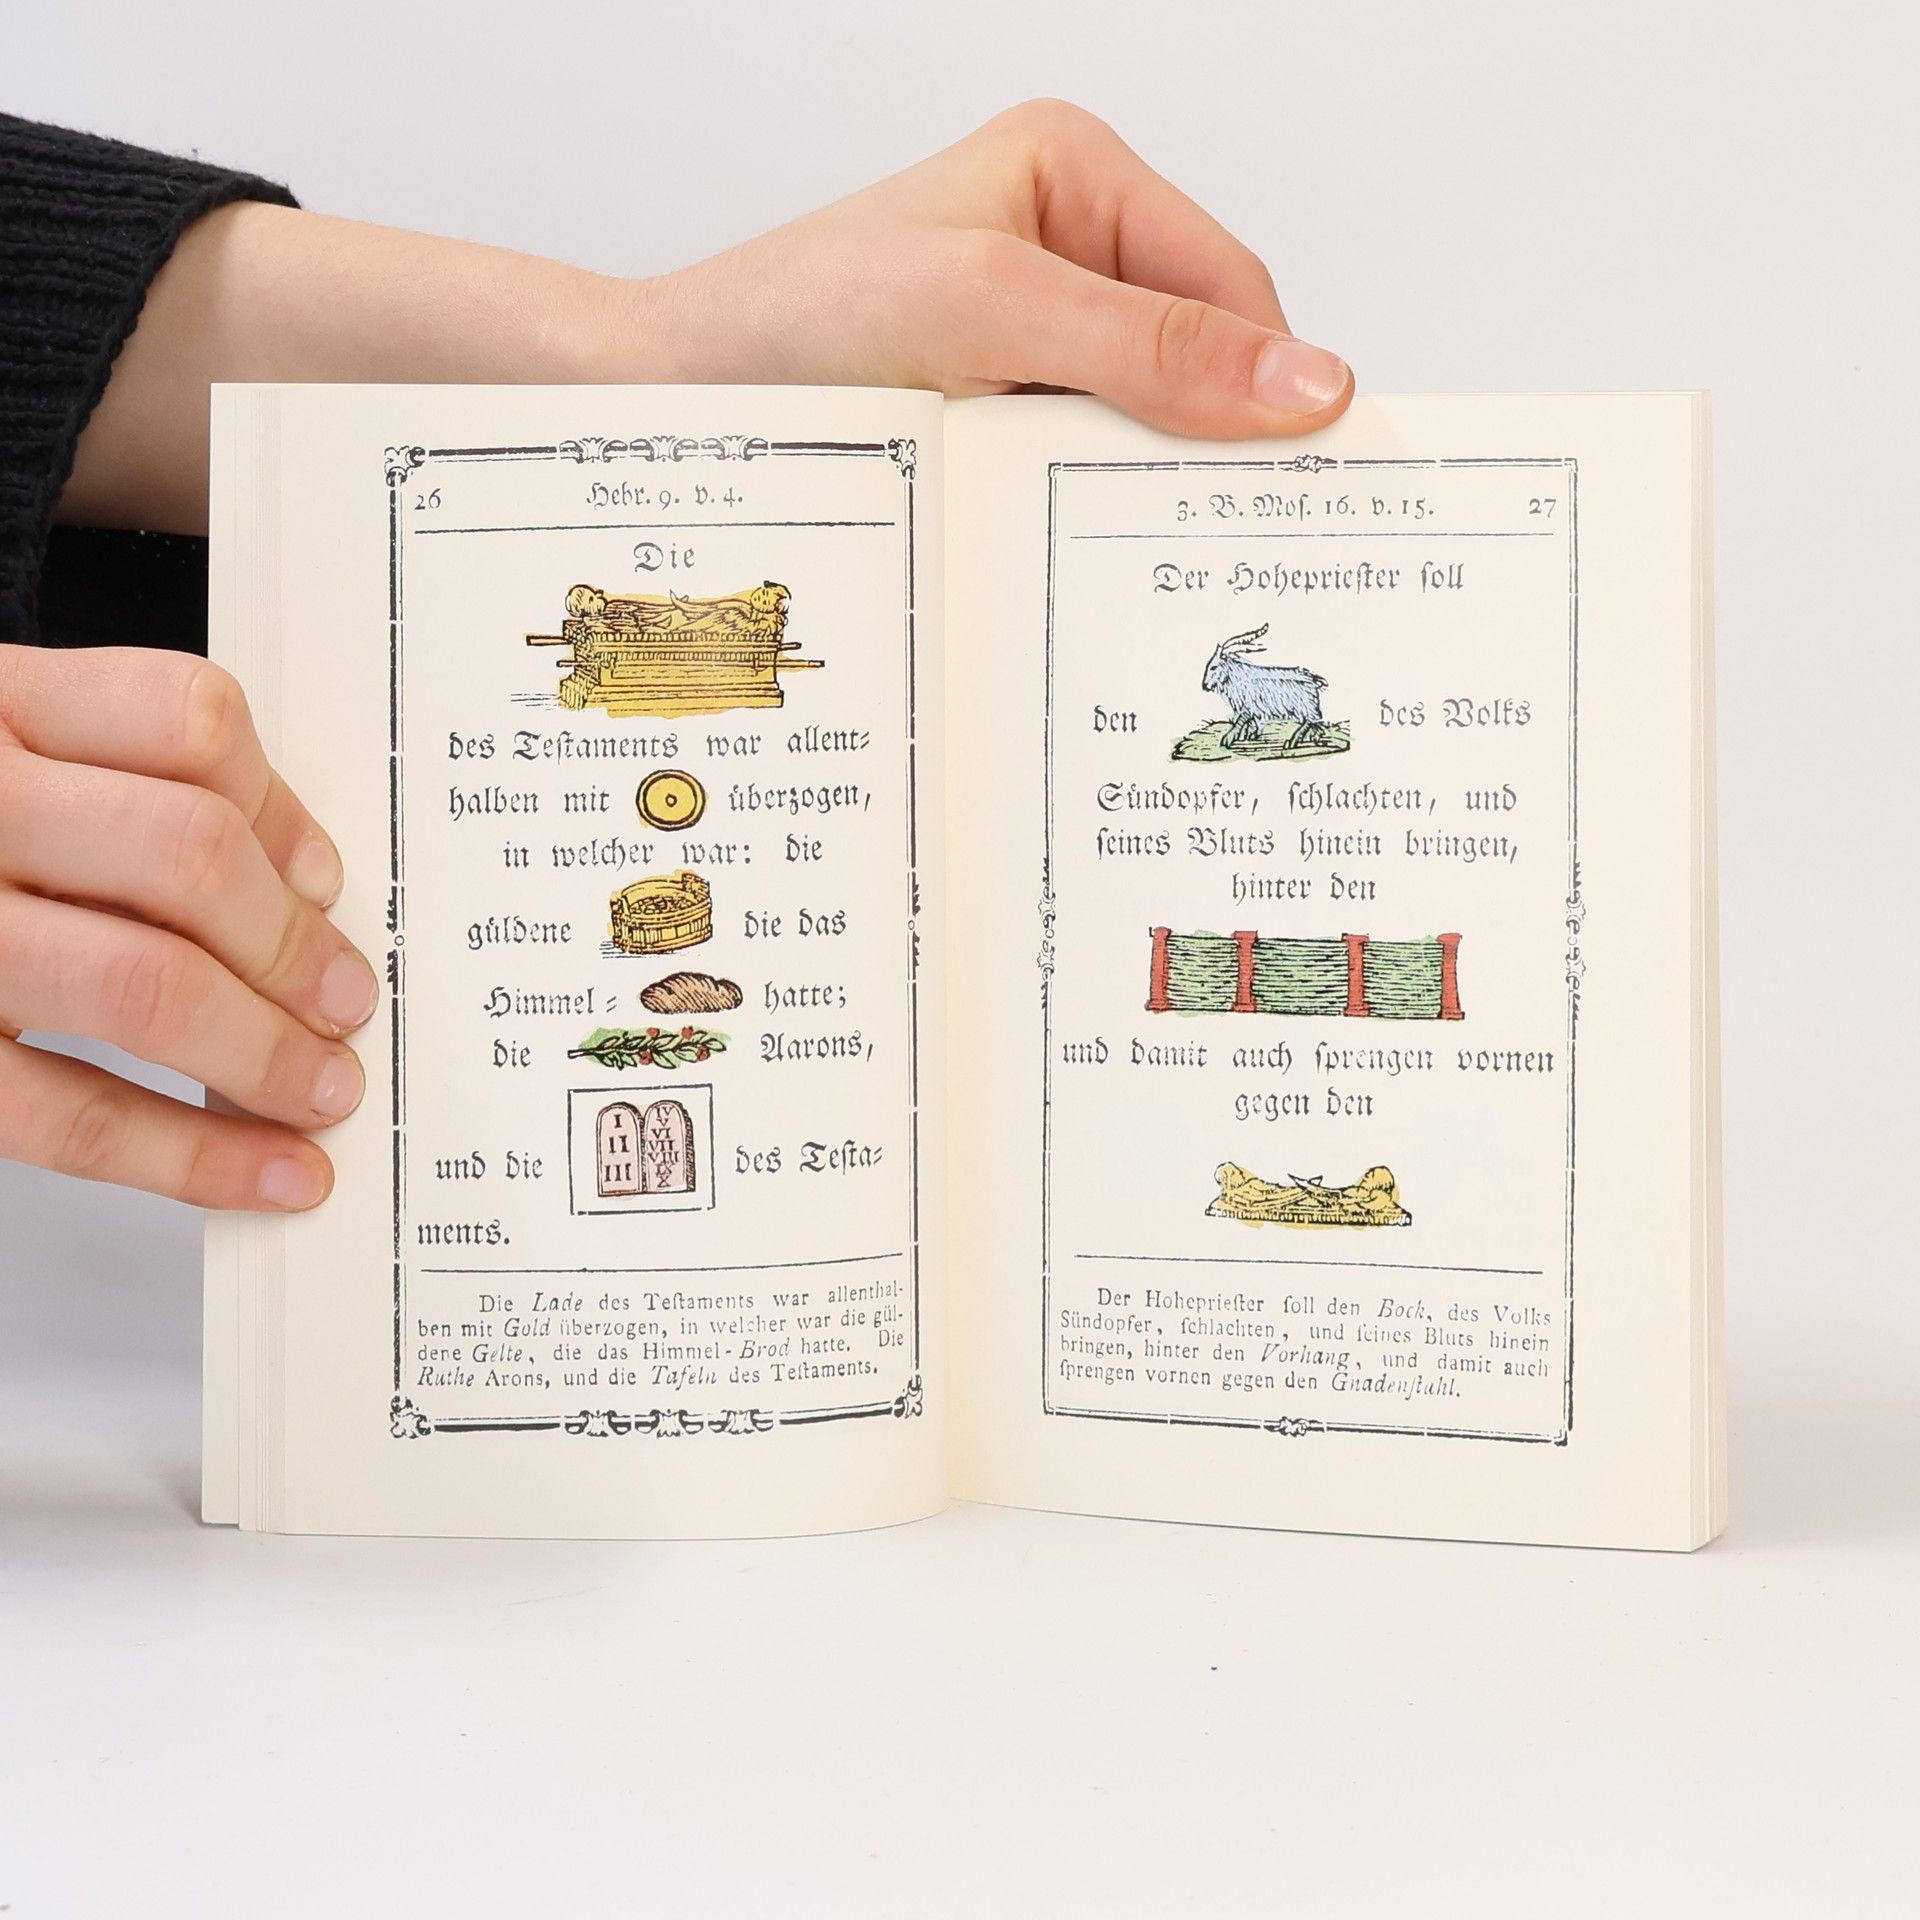 26 Hebr. 9. v. 4.
Die
des Teſtaments war allent⸗
halben mit überzogen,
in welcher war: die
güldene die das
Himmel⸗ hatte;
die Aarons,
I IV
V
II VI
VII
III VIII
IX
X
und die des Teſta⸗
ments.
Die Lade des Teſtaments war allenthal-
ben mit Gold überzogen, in welcher war die gül-
dene Gelte, die das Himmel-Brod hatte. Die
Ruthe Arons, und die Tafeln des Teſtaments.
3. B. Moſ. 16. v. 15. 27
Der Hoheprieſter ſoll
den des Volks
Sündopfer, ſchlachten, und
ſeines Bluts hinein bringen,
hinter den
und damit auch ſprengen vornen
gegen den
Der Hoheprieſter ſoll den Bock, des Volks
Sündopfer, ſchlachten, und ſeines Bluts hinein
bringen, hinter den Vorhang, und damit auch
ſprengen vornen gegen den Gnadenſtuhl.